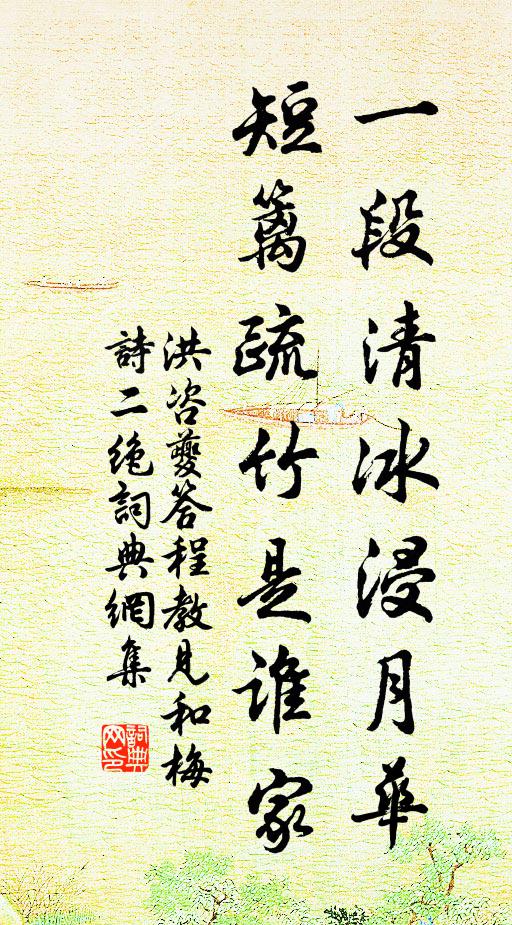 一段清冰浸月華
短篱疏竹是誰家
洪咨夔答程教見和梅
詩二絶詞典網集
詞典
网印